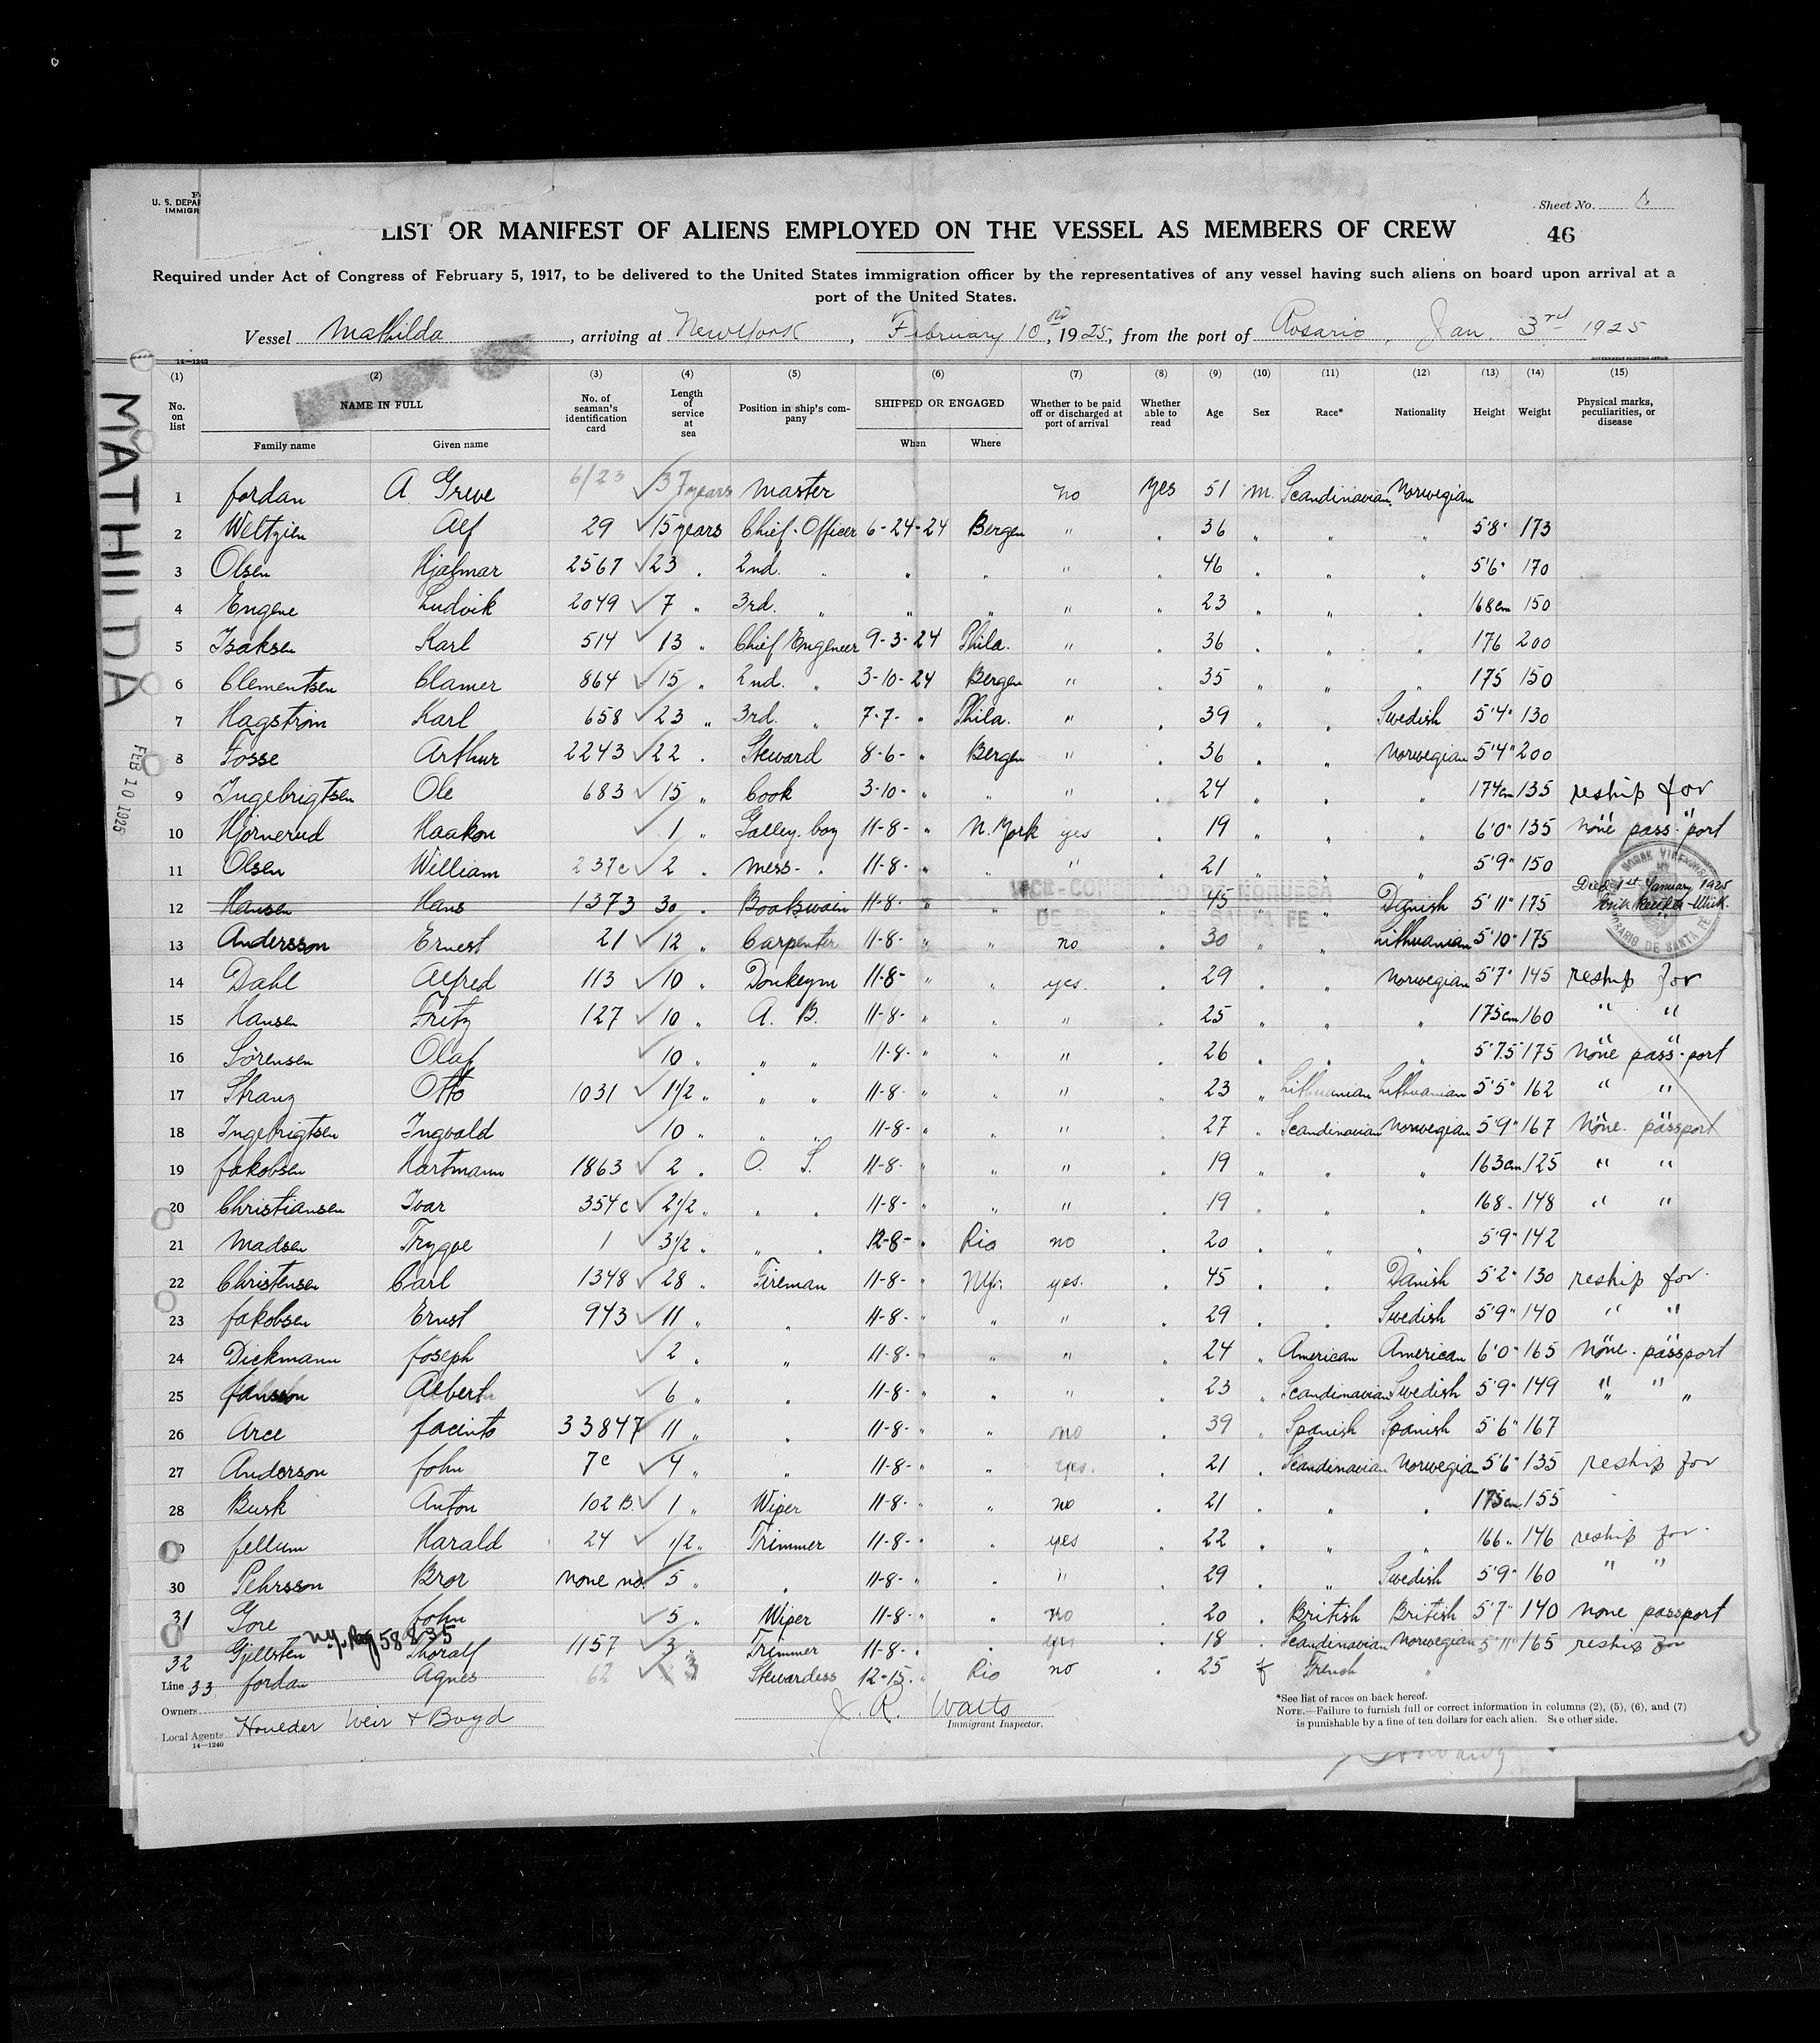 U. S. DEPAR
IMMIGR
Sheet No.
LIST OR MANIFEST OF ALIENS EMPLOYED ON THE VESSEL AS MEMBERS OF CREW
46
Required under Act of Congress of February 5, 1917, to be delivered to the United States immigration officer by the representatives of any vessel having such aliens on board upon arrival at a
port of the United States.
Vessel Mathilda, arriving at New York, February 10th, 1925, from the port of Rosario, Jan. 3rd 1925
14—1240 GOVERNMENT PRINTING OFFICE
MATHILDA
FEB 10 1925
(1) (2) (3) (4) (5) (6) (7) (8) (9) (10) (11) (12) (13) (14) (15)
No. on list NAME IN FULL No. of seaman's identification card Length of service at sea Position in ship's company SHIPPED OR ENGAGED Whether to be paid off or discharged at port of arrival Whether able to read Age Sex Race* Nationality Height Weight Physical marks, peculiarities, or disease
Family name Given name When Where
1 Jordan A Greve 6/23 37 years Master no yes 51 m. Scandinavian Norwegian
2 Weltzien Alf 29 15 years Chief Officer 6-24-24 Bergen " " 36 " " " 5'8" 173
3 Olsen Hjalmar 2567 23 " 2nd. " " " " " 46 " " " 5'6" 170
4 Engene Ludvik 2049 7 " 3rd. " " " " " 23 " " " 168cm 150
5 Isaksen Karl 514 13 " Chief Engeneer 9-3-24 Phila. " " 36 " " " 176 200
6 Clementsen Clamer 864 15 " 2nd. " 3-10-24 Bergen " " 35 " " " 175 150
7 Hagström Karl 658 23 " 3rd. " 7-7- " Phila. " " 39 " " Swedish 5'4" 130
8 Fosse Arthur 2243 22 " Steward 8-6- " Bergen " " 36 " " Norwegian 5'4" 200
9 Ingebrigtsen Ole 683 15 " Cook 3-10- " " " " 24 " " " 174cm 135 reship for
10 Hjörnerud Haakon 1 " Galley boy 11-8- " N. York yes " 19 " " " 6'0" 135 none pass-port
11 Olsen William 237c 2 " Mess- " 11-8- " " " " 21 " " " 5'9" 150
12 Hansen Hans 1373 30 " Boatswain 11-8- " " " " 45 " " Danish 5'11" 175 Died 1st January 1925
VICE-CONSULADO DE NORUEGA
DE SANTA FE
13 Andersson Ernest 21 12 " Carpenter 11-8- " " no " 30 " " Lithuanian 5'10" 175
14 Dahl Alfred 113 10 " Donkeym 11-8- " " yes. " 29 " " Norwegian 5'7" 145 reship for
15 Hansen Fritz 127 10 " A. B. 11-8- " " " " 25 " " " 175cm 160 " "
16 Sörensen Olaf 10 " " " 11-8- " " " " 26 " " " 5'7.5 175 none pass-port
17 Stranz Otto 1031 1 1/2 " " " 11-8- " " " " 23 " Lithuanian Lithuanian 5'5" 162 " "
18 Ingebrigtsen Ingvald 10 " " " 11-8- " " " " 27 " Scandinavian Norwegian 5'9" 167 none. passport
19 Jakobsen Hartmann 1863 2 " O. S. 11-8- " " " " 19 " " " 163cm. 125 " "
20 Christiansen Ivar 354c 2 1/2 " " " 11-8- " " " " 19 " " " 168 " 148 " "
21 Madsen Trygve 1 3 1/2 " " " 12-8- " Rio no " 20 " " " 5'9" 142
22 Christensen Carl 1348 28 " Fireman 11-8- " N.Y. yes. " 45 " " Danish 5'2" 130 reship for
23 Jakobsen Ernst 943 11 " " 11-8- " " " " 29 " " Swedish 5'9" 140 " "
24 Dickmann Joseph 2 " " 11-8- " " " " 24 " American American 6'0" 165 none. passport
25 Jansson Albert 6 " " 11-8- " " " " 23 " Scandinavian Swedish 5'9" 149 " " "
26 Arce Jacinto 33847 11 " " 11-8- " " no " 39 " Spanish Spanish 5'6" 167
27 Anderson John 7c 4 " " 11-8- " " yes. " 21 " Scandinavian Norwegian 5'6" 135 reship for
28 Busk Anton 102 B. 1 " Wiper 11-8- " " no " 21 " " " 175cm. 155
Jellum Harald 24 1/2 " Trimmer 11-8- " " yes " 22 " " " 166 " 146 reship for
30 Pehrsson Bror none no. 5 " " 11-8- " " " " 29 " " Swedish 5'9" 160 " "
31 Gore John 5 " Wiper 11-8- " " no " 20 " British British 5'7" 140 none passport
58835
32 Gjellsten Thoralf 1157 3 " Trimmer 11-8- " " yes " 18 " Scandinavian Norwegian 5'11" 165 reship for
Line 33 Jordan Agnes 62 3 Stewardess 12-15- " Rio no " 25 f French "
Owners
Local Agents Houlder Weir & Boyd
14—1240
J. R. Watts
Immigrant Inspector.
*See list of races on back hereof.
NOTE.—Failure to furnish full or correct information in columns (2), (5), (6), and (7)
is punishable by a fine of ten dollars for each alien. See other side.